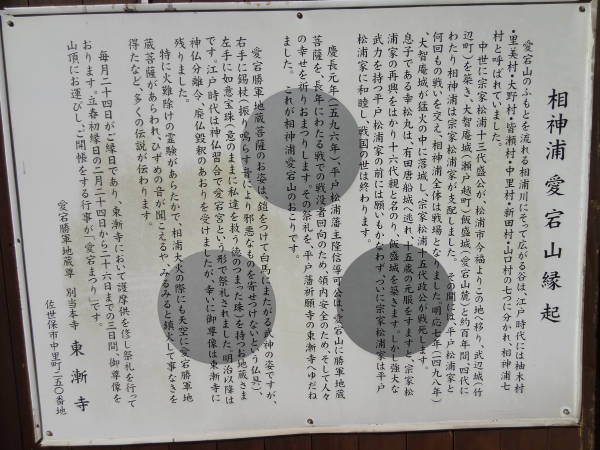 相神浦 愛宕山縁起
愛宕山のふもとを流れる相浦川にそって広がる谷は、江戸時代には柚木村
・里美村・大野村・皆瀬村・中里村・新田村・山口村の七つに分かれ、相神浦七
村と呼ばれていました。
中世に宗家松浦十三代盛公が、松浦市今福よりこの地へ移り、武辺城(竹
辺町)を築き、大智庵城(瀬戸越町)、飯盛城(愛宕山)などと約百年間、四代に
わたり相神浦は宗家松浦家が支配しました。その間に幾度、平戸松浦家と
何回もの戦いを交え、相神浦全体は戦場となりました。明応七年(一四九八)
、大智庵城が猛火の中に落城し、宗家松浦十五代政公が戦死します。
息子である幸松丸は、有田唐船城へ逃れ、十五歳の元服をすますと、宗家松
浦家の再興をはかり十六代親と名のり、飯盛城を築きます。しかし強大な
武力を持つ平戸松浦家の前には願いもかなわず、ついに宗家松浦家は平戸
松浦家に和睦し、戦国の世は終わります。
慶長元年(一五九六年)、平戸松浦藩主隆信導可公は愛宕山に勝軍地蔵
菩薩を、長年にわたる戦での戦没者回向のため、領内安全のため、そして人々
の幸せを祈りおまつりします。その祭礼を、平戸藩祈願寺の東漸寺へゆだね
ました。これが相神浦愛宕山のおこりです。
愛宕勝軍地蔵菩薩のお姿は、鎧をつけて白馬にまたがる武神の姿ですが、
右手に錫杖(振り鳴らす音により邪悪なものを寄せつけないという仏具)、
左手に如意宝珠(意のままに私達を救う徳のつまった珠)を持つお地蔵さま
です。江戸時代は神仏習合で愛宕宮という形で祭礼されました。明治以降は
神仏分離令、廃仏毀釈のあおりを受けましたが、幸いに御尊像は東漸寺に
残りました。
特に火難除けの霊験があらたかで、相浦大火の際にも天空に愛宕勝軍地
蔵菩薩があらわれ、ひずめの音が聞こえるや、みるみると鎮火して事なきを
得たなど、多くの伝説が伝わります。
毎月二十四日がご縁日であり、東漸寺において護摩供を修し祭礼を行って
おります。立春初縁日の二月二十四日から二十六日までの三日間、御尊像を
山頂にお運びし、ご開帳をする行事が「愛宕まつり」です。
愛宕勝軍地蔵尊 別当本寺 東漸寺
佐世保市中里町二五〇番地